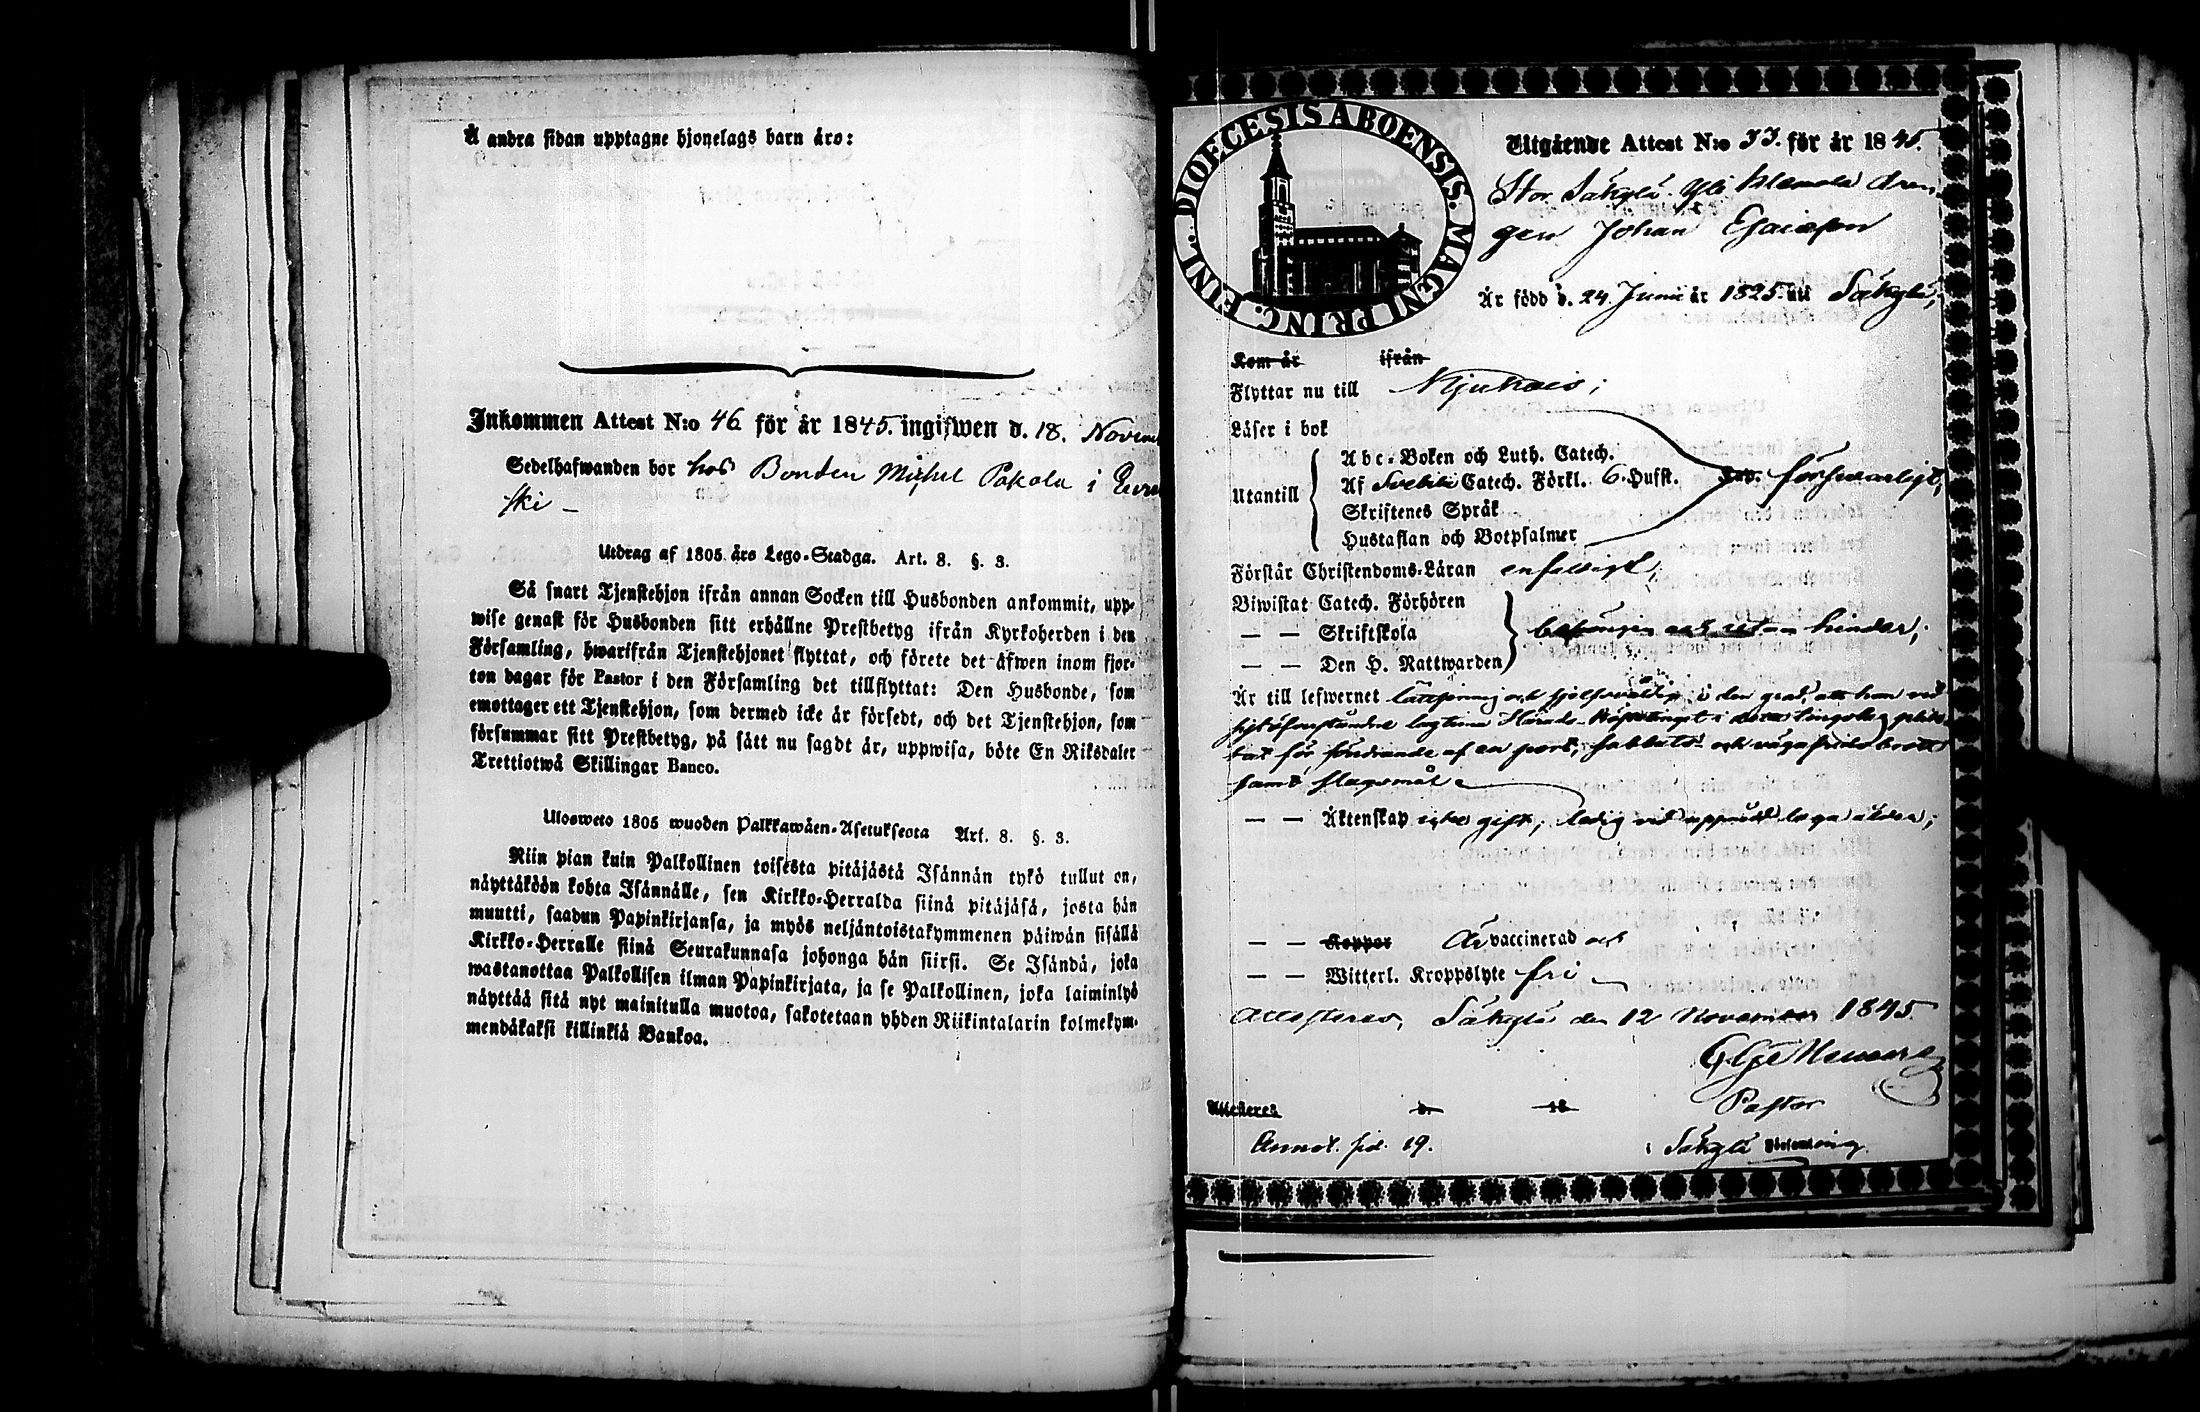 Å andra sidan upptagne hjonelags barn äro:
Inkommen Attest N:o 46 för år 1845. ingifwen d. 18. Novem
Sedelhafwanden bor hos Bonden Michel Pakola i Eura
ski –
Utdrag af 1805 års Lego-Stadga. Art. 8. §. 3.
Så snart Tjenstehjon ifrån annan Socken till Husbonden ankommit, upp-
wise genast för Husbonden sitt erhållne Prestbetyg ifrån Kyrkoherden i den
Församling, hwarifrån Tjenstehjonet flyttat, och förete det äfwen inom fjor-
ton dagar för Pastor i den Församling det tillflyttat: Den Husbonde, som
emottager ett Tjenstehjon, som dermed icke är försedt, och det Tjenstehjon, som
försummar sitt Prestbetyg, på sätt nu sagdt är, uppwisa, böte En Riksdaler
Trettiotwå Skillingar Banco.
Ulosweto 1805 wuoden Palkkawäen-Asetuksesta Art. 8. §. 3.
Niin pian kuin Palkollinen toisesta pitäjästä Isännän tykö tullut on,
näyttäköön kohta Isännälle, sen Kirkko-Herralda siinä pitäjäsä, josta hän
muutti, saadun Papinkirjansa, ja myös neljäntoistakymmenen päiwän sisällä
Kirkko-Herralle siinä Seurakunnasa johonga hän siirsi. Se Isändä, joka
wastanottaa Palkollisen ilman Papinkirjata, ja se Palkollinen, joka laiminlyö
näyttää sitä nyt mainitulla muotoa, sakotetaan yhden Riikintalarin kolmekym-
mendäkaksi killinkiä Bankoa.
DIOECESIS ABOENSIS. MAGNI PRINC. FINL.
Utgående Attest N:o 33. för år 1845.
Stor Säkylä Yli Klemola dren-
gen Johan Esaiasson
Är född d. 24 Juni år 1825. uti Säkylä;
Kom år ifrån
Flyttar nu till Kjukais;
Läser i bok
Utantill
Abc-Boken och Luth. Catech.
Af Svebili Catech. Förkl. 6. Hufst. försvarligt;
Skriftenes Språk
Hustaflan och Botpsalmer
Förstår Christendoms-Läran enfaldigt;
Biwistat Catech. Förhören
— — Skriftskola begången och utan hinder;
— — Den H. Nattwarden
Är till lefwernet lättsinnig och sjelfsvåldig i den grad, att han vid
sistförflutne lagtima Härads-
för af en port, sabbats- och vägafridsbrott
samt slagsmål
— — Äktenskap icke gift; ledig vid uppnådd laga ålder;
— — Koppor Är vaccinerad och
— — Witterl. Kroppslyte fri
Attesteras, Säkylä den 12 November 1845.
Pastor
Attesteres d. 18
Annot. sid. 19. i Säkylä Församling.